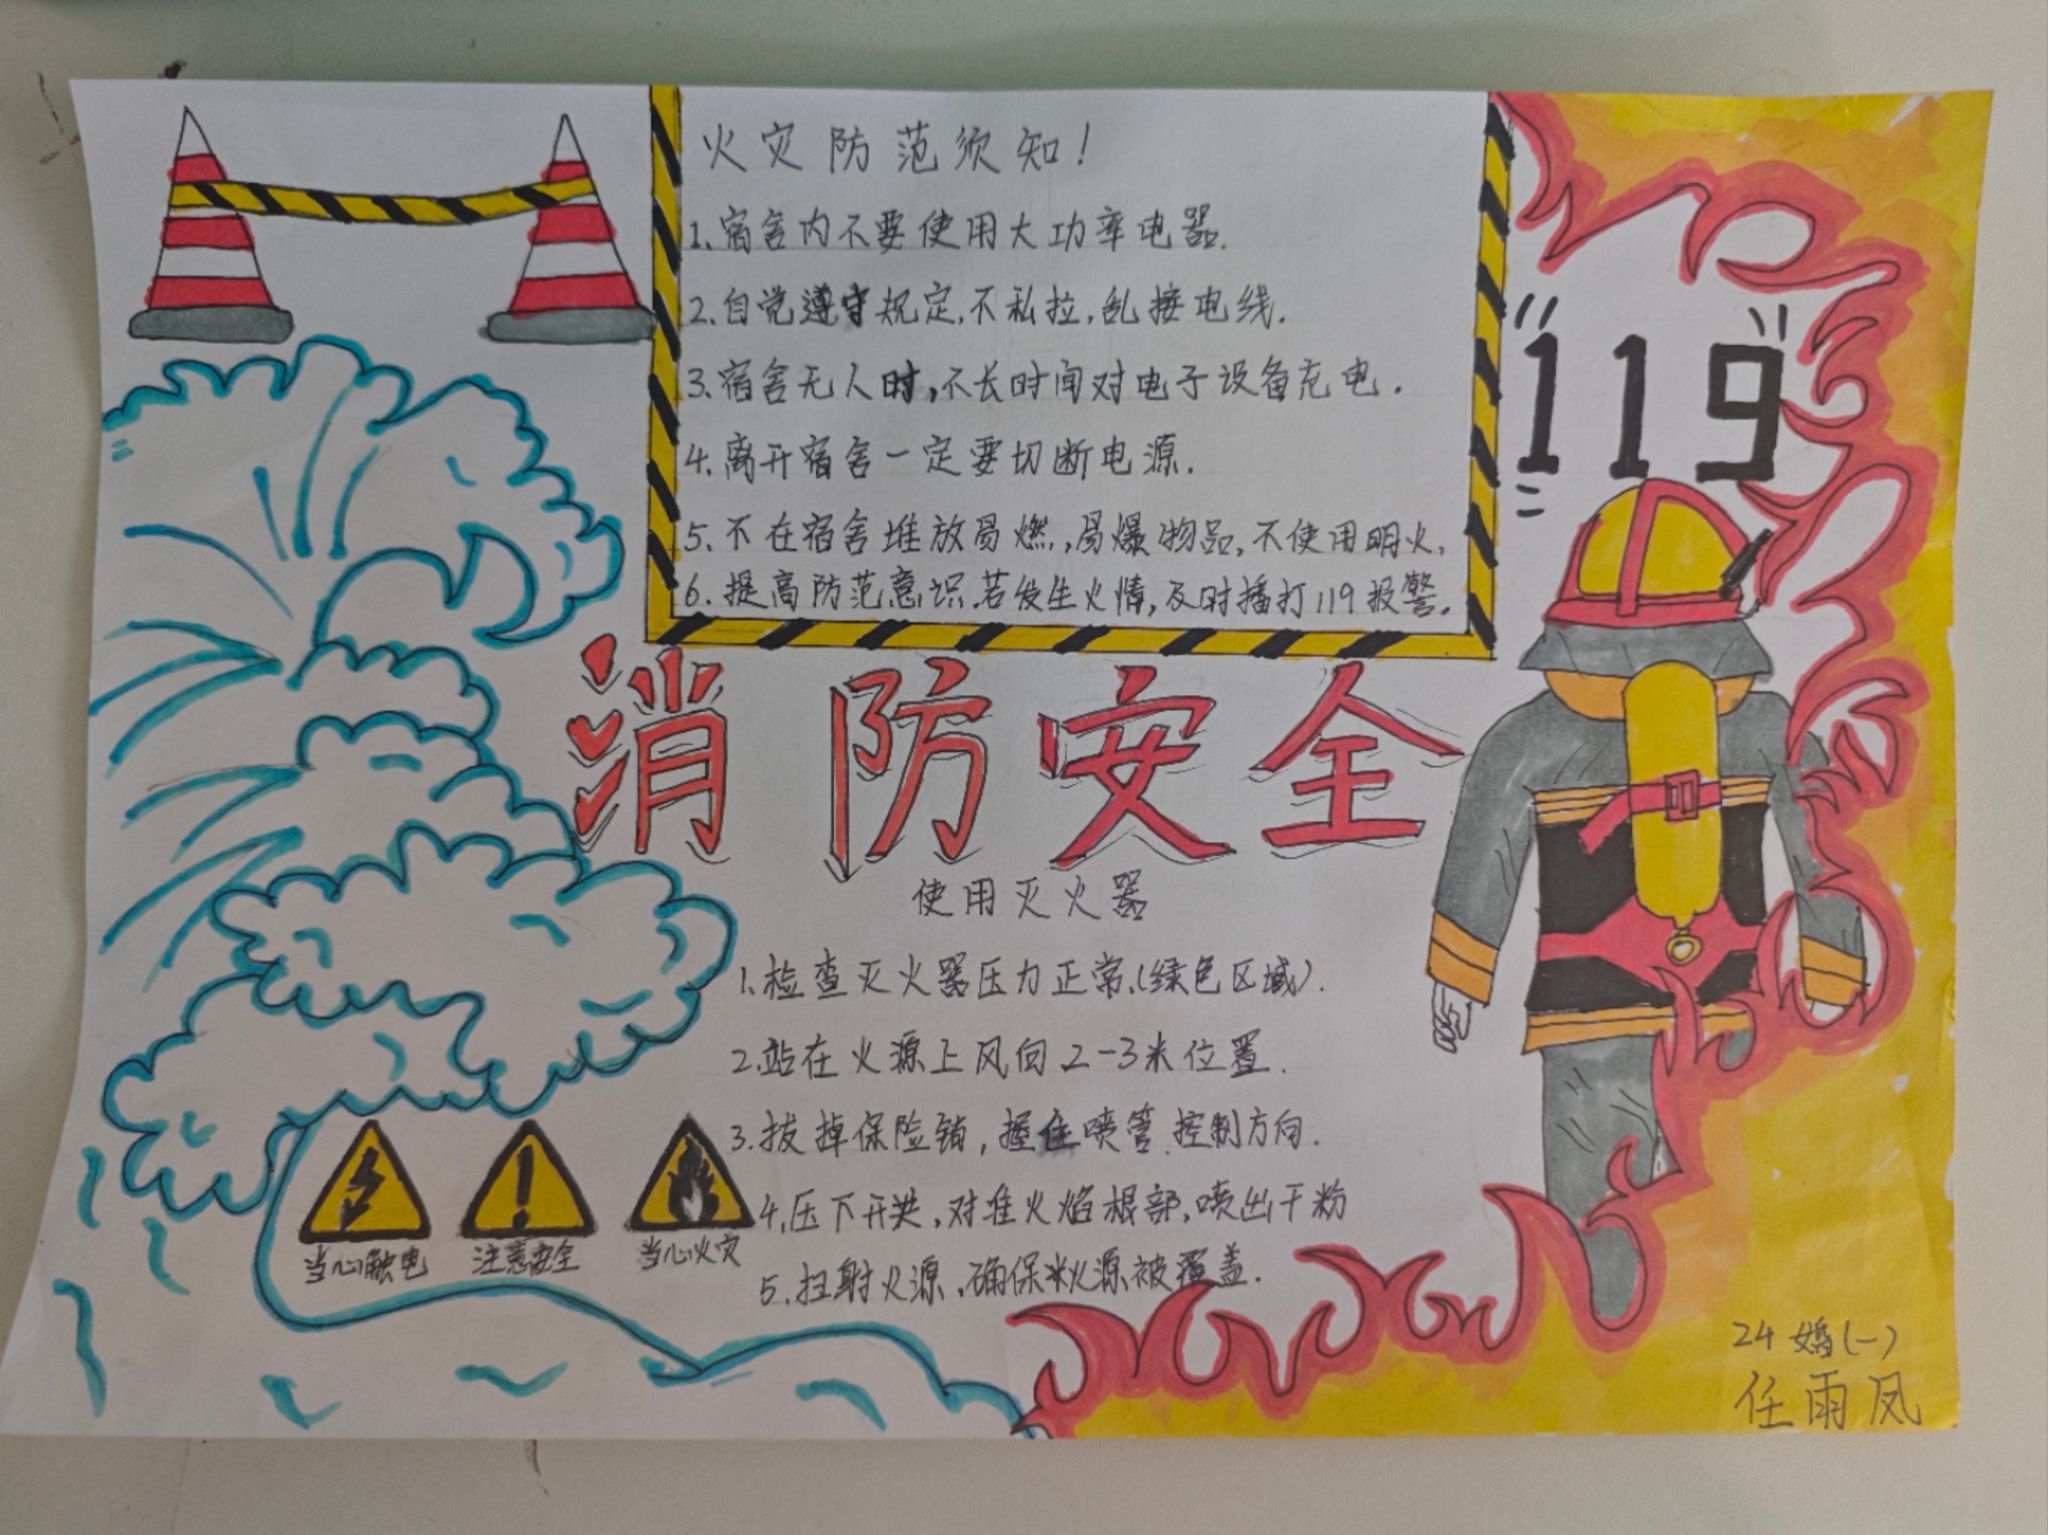 火灾防范须知！
1.宿舍内不要使用大功率电器.
2.自觉遵守规定,不私拉,乱接电线.
3.宿舍无人时,不长时间对电子设备充电.
4.离开宿舍一定要切断电源.
5.不在宿舍堆放易燃,易爆物品,不使用明火,
6.提高防范意识.若发生火情,及时播打119报警.
119
消防安全
使用灭火器
1.检查灭火器压力正常.(绿色区域).
2.站在火源上风向2-3米位置.
3.拔掉保险销,握住喷管.控制方向.
4.压下开关,对准火焰根部,喷出干粉
5.扫射火源,确保火源被覆盖.
当心触电
注意安全
当心火灾
24婚(一)
任雨凤